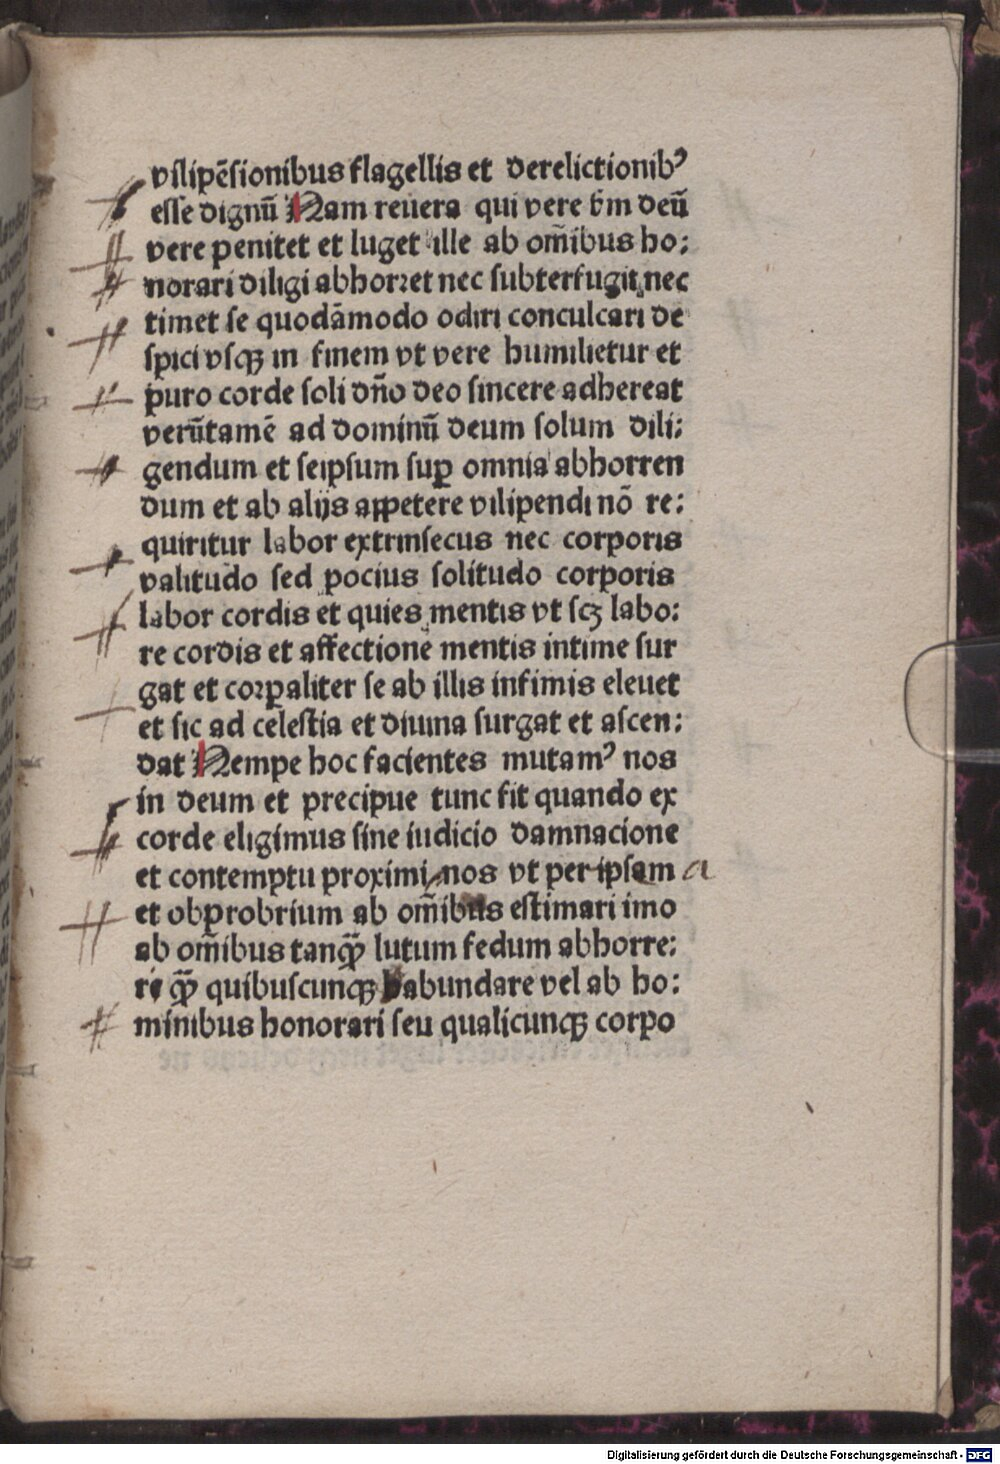 vſlipēſionibus flagellis et derelictionibꝰ
eſſe dignū Nam reuera qui vere tīm deū
vere penitet et luget ille ab om̄ibus ho:
norari diligi abhorꝛet nec ſubterfugit nec
timet ſe quodāmodo odiri conculcari de
ſpici vſqꝫ in finem vt vere humilietur et
puro corde ſoli dn̄o deo ſincere adhereat
verūtamē ad dominū deum ſolum dili:
gendum et ſeipſum ſuꝑ omnia abhorren
dum et ab alijs appetere vilipendi nō re:
quiritur labor extrinſecus nec corporis
valitudo ſed pocius ſolitudo corporis
labor cordis et quies mentis vt ſcꝫ labo:
re cordis et affectione mentis intime ſur
gat et coꝛꝑaliter ſe ab illis infimis eleuet
et ſic ad celeſtia et diuina ſurgat et aſcen:
dat Nempe hoc facientes mutamꝰ nos
in deum et precipue tunc fit quando ex
corde eligimus ſine iudicio damnacione
et contemptu proximi nos vt per ipſam a
et obꝓbrium ab om̄ibus eſtimari imo
ab om̄ibus tanqͣ̄ lutum fedum abhorre:
ri qͣ̄ quibuſcunqꝫ habundare vel ab ho:
minibus honorari ſeu qualicunqꝫ corpo
Digitalisierung gefördert durch die Deutsche Forschungsgemeinschaft - DFG